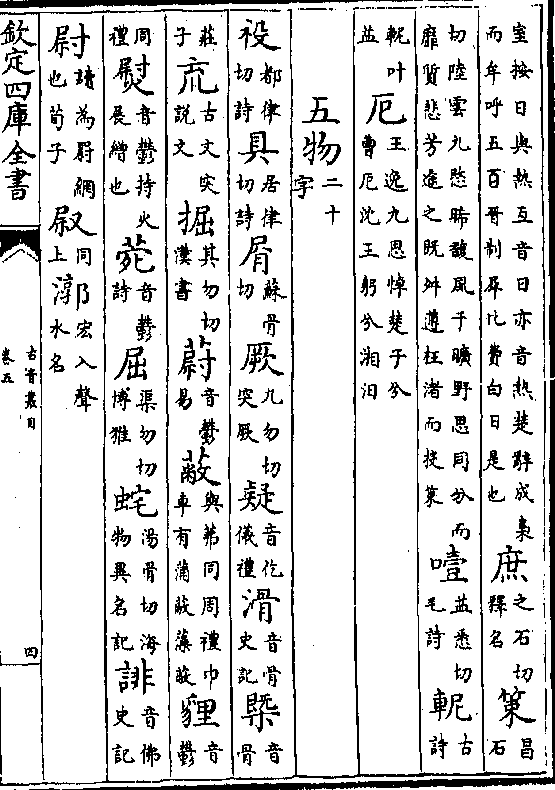 室按日與熱互音日亦音熱楚辭成梟而牟呼五百晉制犀比費白日是也 庶之石切釋名 策昌石
切陸雲九愍睎馥風于曠野思同分而靡質悲芳進之既舛遵枉渚而投策 噎益悉切毛詩 軶古詩
軶叶益 厄王逸九思悼楚子兮曹厄沈王躬兮湘汨
五物二十字
祋都律切詩 具居律切詩 屑蘇骨切 厥九勿切突厥 疑音仡儀禮 滑音骨史記 槩音骨
莊子 㐬古文突說文 掘其勿切漢書 蔚音鬱易 蔽與茀同周禮巾車有蒲蔽藻蔽 貍音鬱
同禮 㷉音鬱持火展繒也 菀音鬱詩 屈渠勿切博雅 蛇湯骨切海物異名記 誹音佛史記
尉讀為罻網也荀子 㕑同上 漷郭宏入聲水名
欽定四庫全書
古音叢目
卷五
四